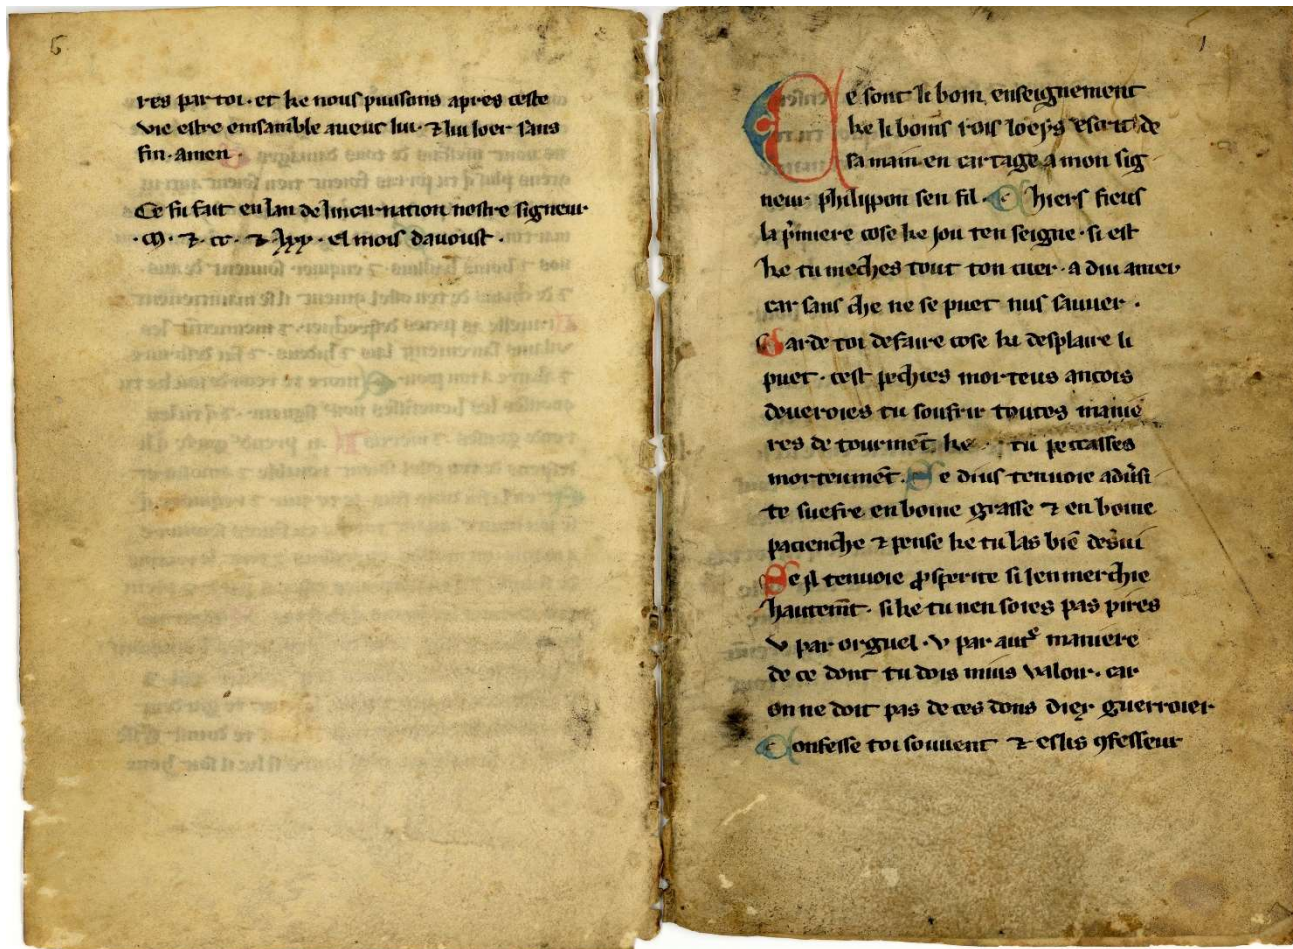 6
res par toi · et ke nous puissons apres ceste
vie estre emsamble aueuc lui · ⁊ lui loer sans
fin · amen ·
Ce fu fait en lan de lincarnation nostre signeur
· M · ⁊ · cc · ⁊ · lxx · el mois dauoust ·
1
Ce sont li boin enseignement
ke li boins rois loeys escrit de
sa main en cartage a mon sig
neur · phelippon sen fil · Chiers fieus
la p̾miere cose ke jou tenseigne · si est
ke tu meches tout ton cuer · a diu amer
car sans che ne se puet nus sauuer ·
Garde toi de faire cose ki desplaire li
puet · cest pechies morteus ancois
deueroies tu soufrir toutes manie
res de tourmēt ke tu peccasses
morteumēt · Se dius tenuoie adũsi
te suefre en boine grasse ⁊ en boine
pacienche ⁊ pense ke tu las biē des̾ui
Se il tenuoie ꝓsperite si len merchie
hautem̄t · si ke tu nen soies pas pires
v par orguel · v par aut̾ maniere
de ce dont tu dois mius valoir · car
on ne doit pas de ces dons diex guerroier
Confesse toi souuent ⁊ eslis ꝯfesseur